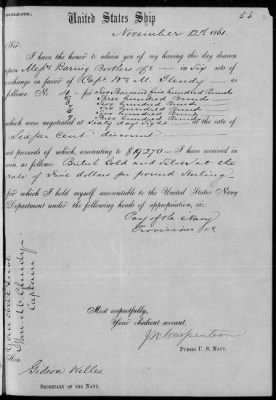 55
United States Ship
November 12th 1861.
Sir:
I have the honor to advise you of my having this day drawn
upon Messrs Baring Brothers & Co in six sets of
exchange in favor of Capt. Wm M. Glendy — as
follows: No. 1 — for Two thousand five hundred Pounds
Five hundred Pounds
Two hundred Pounds
Two hundred Pounds
hundred Pounds
which were negotiated at sixty days at the rate of
Six per Cent discount
net proceeds of which, amounting to $19270 — I have received
in coin, as follows: British Gold and Silver at the
rate of Five dollars per pound Sterling
for which I hold myself accountable to the United States Navy
Department under the following heads of appropriation, viz:
Pay of the Navy
Provisions &c
Most respectfully,
Your obedient servant,
J W Carpenter
Purser U. S. Navy.
Wm M. Glendy
Captain
Hon.
Gideon Welles
Secretary of the Navy.